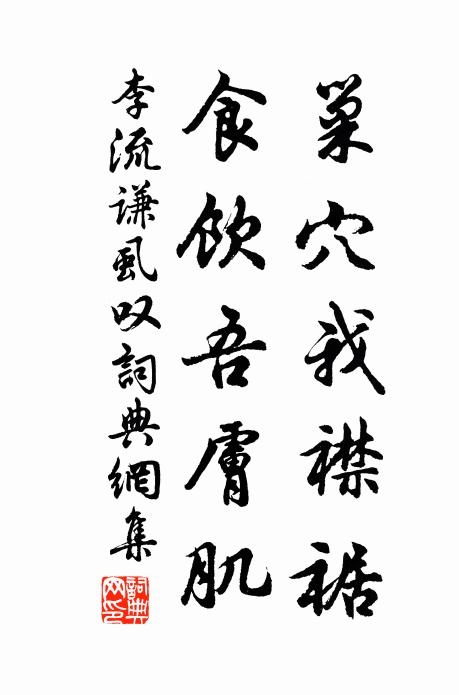 巢穴我襟裾
食飲吾膚肌
李流謙虱叹詞典網集
詞典網印